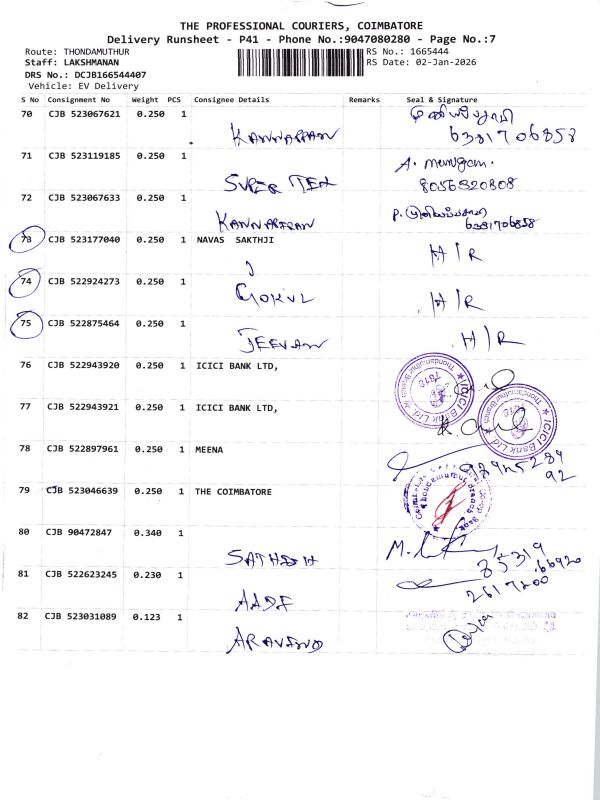 THE PROFESSIONAL COURIERS, COIMBATORE
Delivery Runsheet - P41 - Phone No.:9047080280 - Page No.:7
Route: THONDAMUTHUR
Staff: LAKSHMANAN
DRS No.: DCJB166544407
Vehicle: EV Delivery
RS No.: 1665444
RS Date: 02-Jan-2026
S No Consignment No Weight PCS Consignee Details Remarks Seal & Signature
70 CJB 523067621 0.250 1 KANNAPPAN
6381706858
71 CJB 523119185 0.250 1 SUPER TEX A. murugan.
8056820808
72 CJB 523067633 0.250 1 KANNAPPAN
6381706858
73 CJB 523177040 0.250 1 NAVAS SAKTHJI H/R
74 CJB 522924273 0.250 1 GOKUL H/R
75 CJB 522875464 0.250 1 JEEVAN H/R
76 CJB 522943920 0.250 1 ICICI BANK LTD, ICICI Bank Ltd. Thondamuthur Branch 7618
77 CJB 522943921 0.250 1 ICICI BANK LTD, ICICI Bank Ltd. Thondamuthur Branch 7618
78 CJB 522897961 0.250 1 MEENA
92
79 CJB 523046639 0.250 1 THE COIMBATORE
80 CJB 90472847 0.340 1 SATHISH 85319
66920
81 CJB 522623245 0.230 1
2617200
82 CJB 523031089 0.123 1 ARAVIND